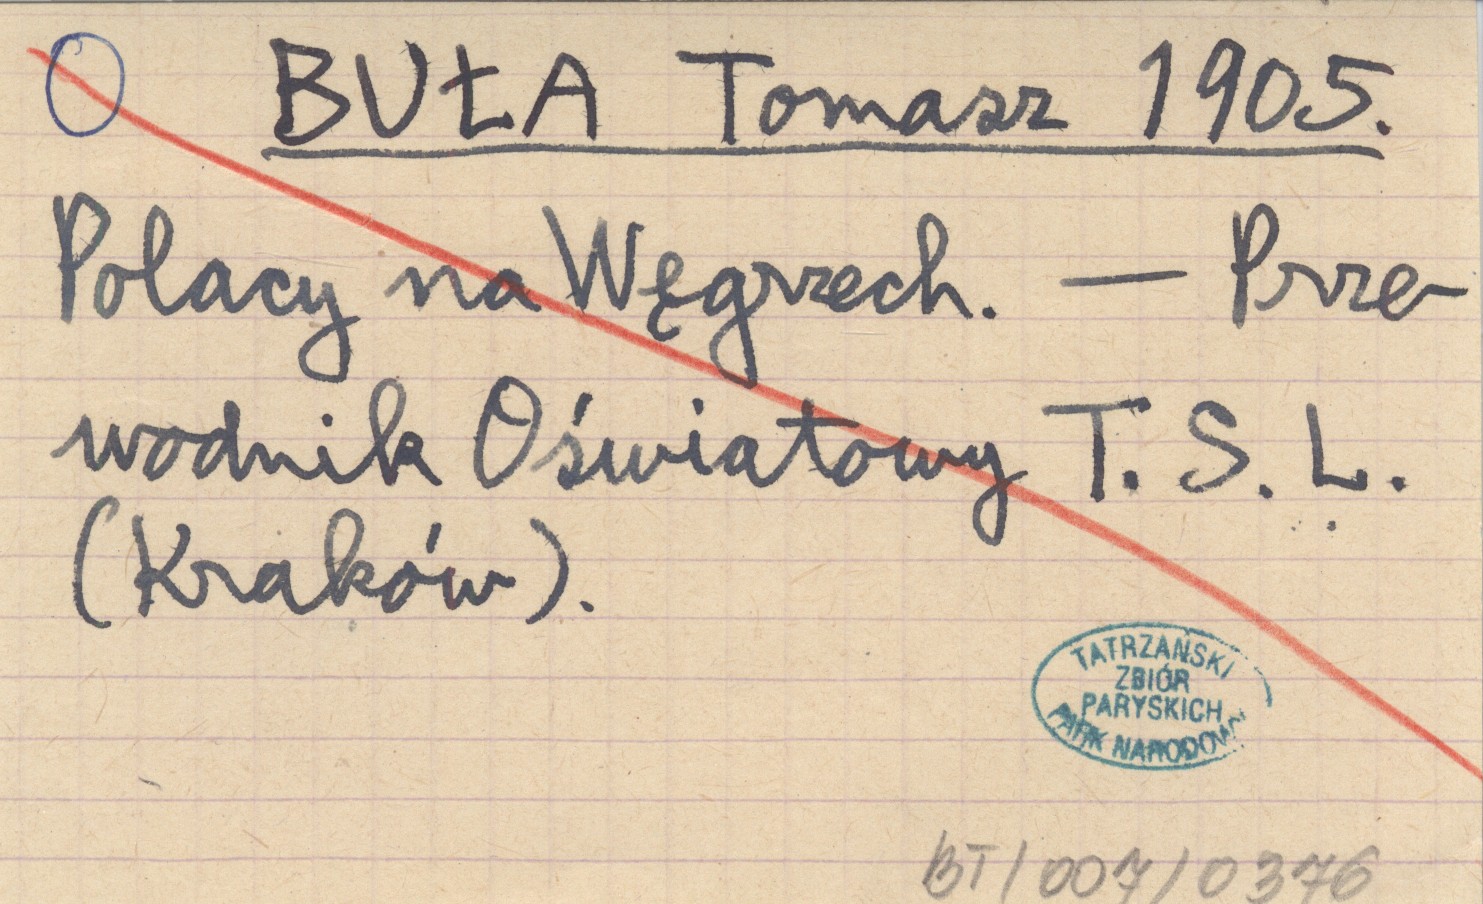 BUŁA Tomasz 1905.
Polacy na Węgrzech. — Prze-
wodnik Oświatowy T. S. L.
(Kraków).
TATRZAŃSKI
ZBIÓR
PARYSKICH
PARK NARODOWY
BT/007/0376